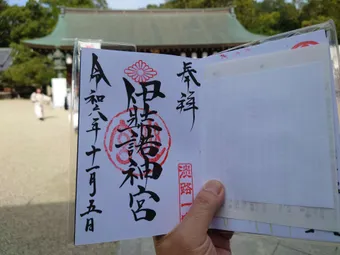 奉拝
伊弉諾神宮
淡路一
令和六年十一月五日